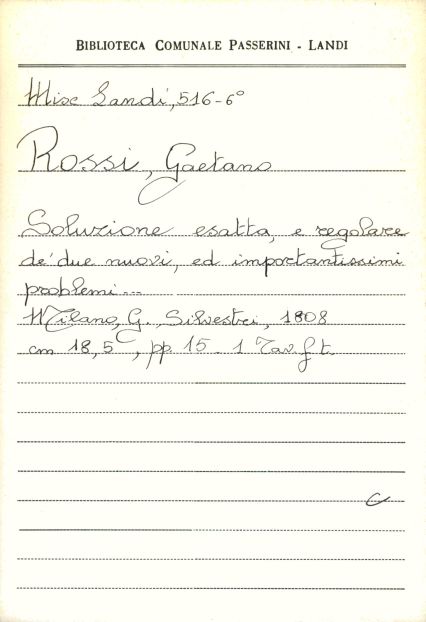 BIBLIOTECA COMUNALE PASSERINI - LANDI
Misc Landi, 516-6°
Rossi, Gaetano
Soluzione esatta, e regolare
de' due nuovi, ed importantissimi
problemi...
Milano, G. Silvestri, 1808
cm 18,5, pp. 15. 1 Tav. f. t.
C